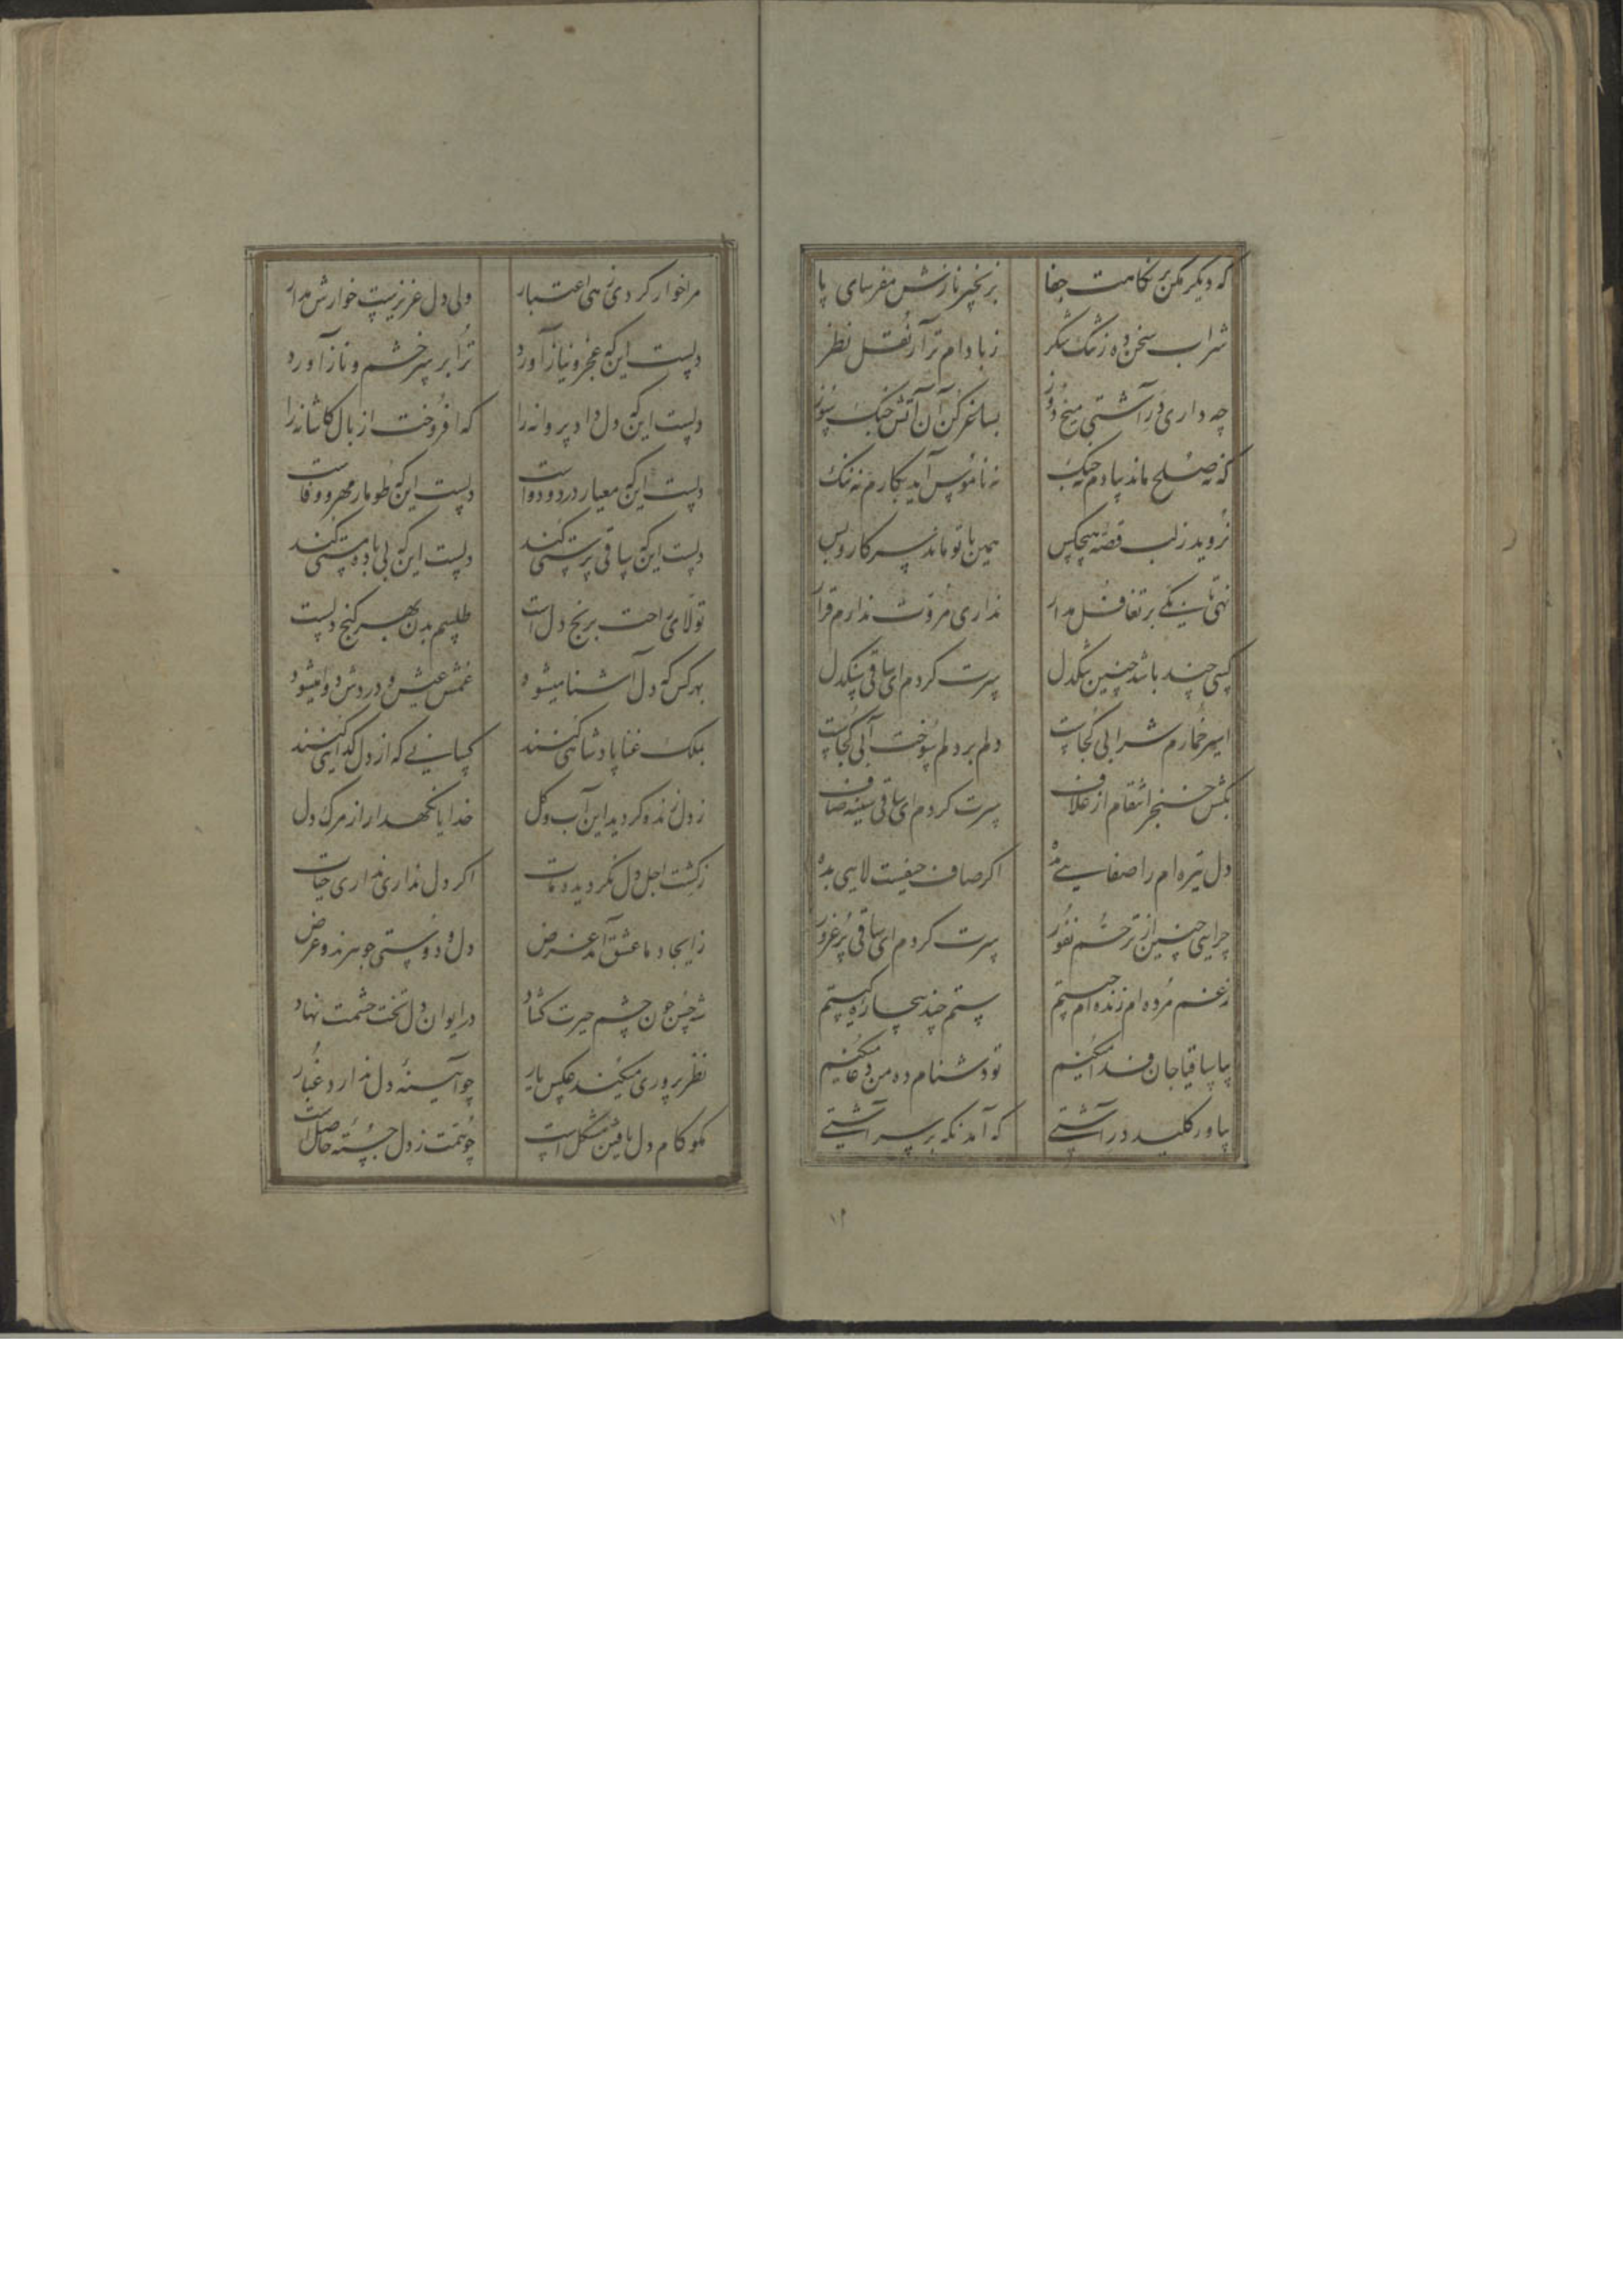 که دیگر مکن بر نکاهت جفا
بزنجیر نازش مفرسای پا
شراب سخن ده ز تنک شکر
ز بادام تر آر نقل نظر
چه داری در آشتی میخ دوز
بساغر کن آن آتش جنک سوز
که نه صلح ماند بیادم نه جنک
نه ناموس آید بکارم نه ننک
نروید ز لب قصه هیچکس
همین با تو ماند سر کار و بس
بنای نکه بر تغافل مدار
نداری مروت ندارم قرار
کسی چند باشد چنین تنکدل
سرت کردم ای ساقی سنکدل
اسیر خمارم شرابی کجاست
دلم بر دلم سوخت آبی کجاست
بکش خنجر انتقام از غلاف
سرت کردم ای ساقی سینه صاف
دل تیره ام را صفایی بده
اگر صاف حیفست لایی بده
چرایی چنین از ترحم نفور
سرت کردم ای ساقی پر غرور
ز غم مرده ام زنده ام چیستم
ستم چند بیچاره کیستم
بیا ساقیا جان فدا میکنم
تو دشنام ده من دعا میکنم
بیاور کلید در آشتی
که آمد نکه بر سر آشتی
۱۲
مرا خوار کردی زهی اعتبار
ولی دل عزیزست خوارش مدار
دلست این که عجز و نیاز آورد
ترا بر سر خشم و ناز آورد
دلست این که دل داد پروانه را
که افروخت از بال کاشانه را
دلست این که معیار درد و دواست
دلست این که طومار مهر و وفاست
دلست این که ساقی پرستی کند
دلست این که بی باده مستی کند
تولای راحت برنج دل است
طلسم بدن بهر کنج دلست
بهر کس که دل آشنا میشود
غمش عیش و دردش دوا میشود
بملک غنا پادشاهی کنند
کسانی که از دل گدایی کنند
ز دل زنده کردید این آب و کل
خدایا نکهدار از مرک دل
ز کشت اجل دل نکردید مات
اگر دل نداری نداری حیات
ز ایجاد ما عشق آمد غرض
دل و دوستی جوهرند و عرض
شه حسن چون چشم حیرت کشاد
در ایوان دل تخت حشمت نهاد
نظر پروری میکند عکس یار
چو آیینه دل ندارد غبار
مکو کام دل یافتن مشکل است
چو همت ز دل جسته حاصل است